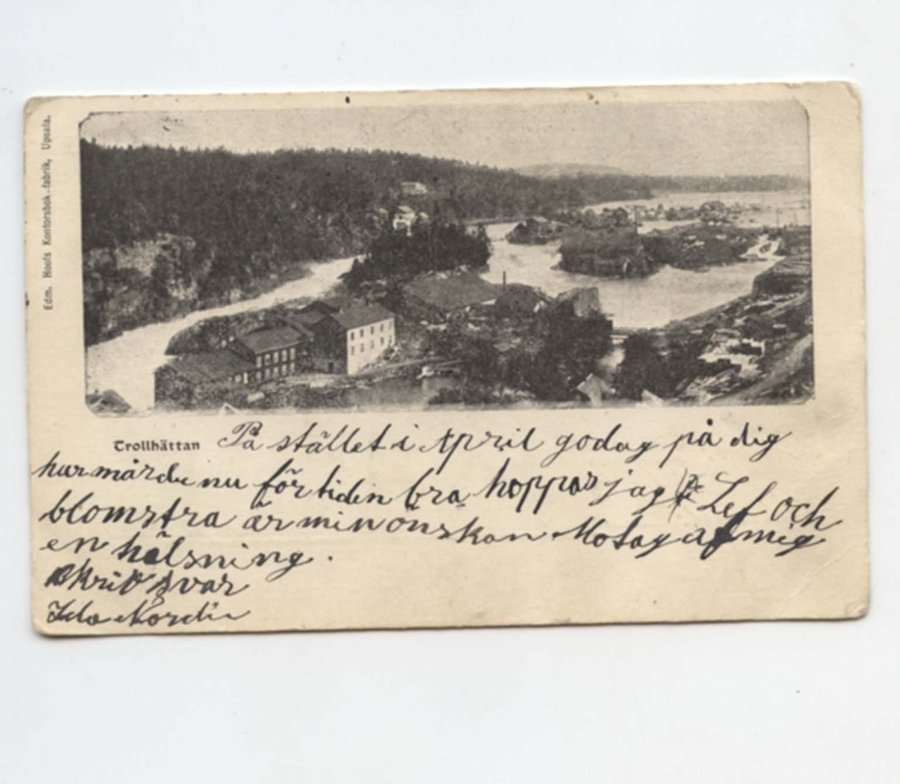 Edm. Hoofs Kontorsbok-fabrik, Upsala.
Trollhättan
På stället i April godag på dig
hur mår du nu för tiden bra hoppas jag Lef och
blomstra är min önskan Motag af mig
en hälsning.
skrif svar
Ida Nordin